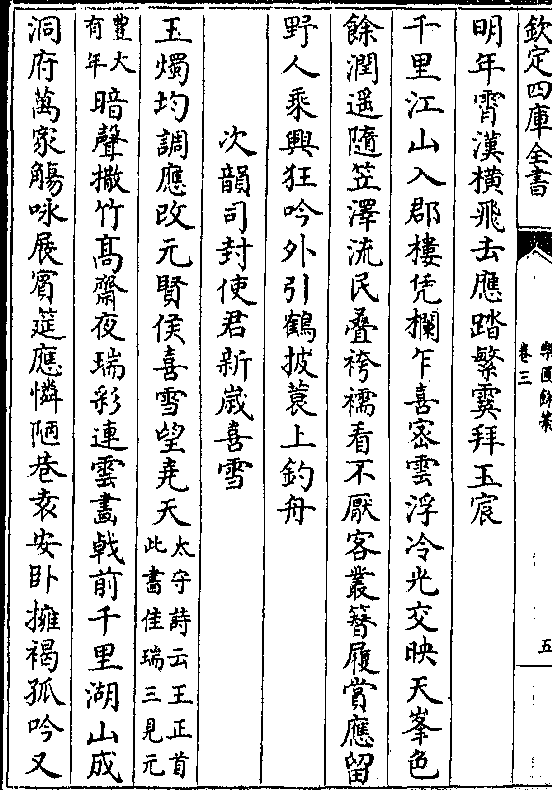 欽定四庫全書
樂圃餘藁
卷三
五
明年霄漢橫飛去應踏繁霙拜玉宸
千里江山入郡樓凭欄乍喜宻雲浮冷光交映天峯色
餘潤遥隨笠澤流民疊袴襦看不厭客叢簪履賞應留
野人乘興狂吟外引鶴披蓑上釣舟
次韻司封使君新歳喜雪
玉燭均調應改元賢侯喜雪望堯天太守詩云王正首此書佳瑞三見元
豊大有年暗聲撒竹髙齋夜瑞彩連雲畵戟前千里湖山成
洞府萬家觴咏展賓筵應憐陋巷袁安卧擁褐孤吟又